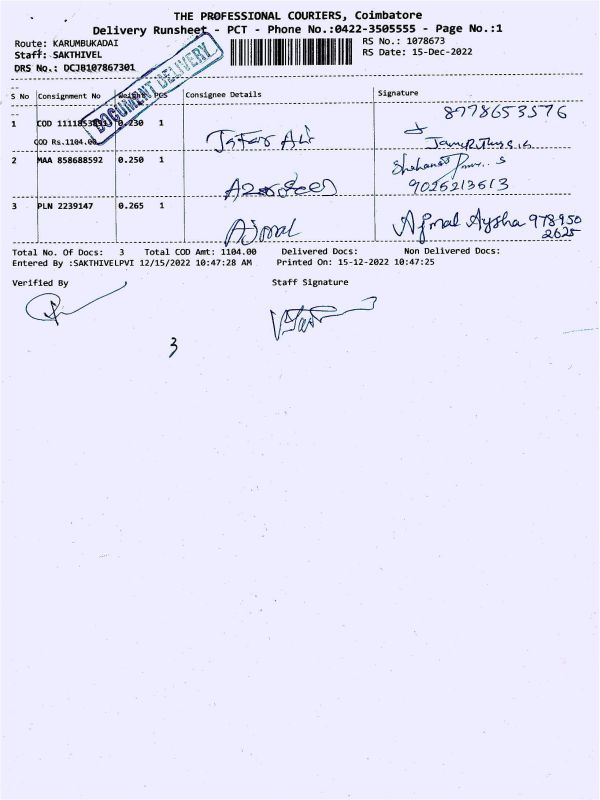 THE PROFESSIONAL COURIERS, Coimbatore
Delivery Runsheet - PCT - Phone No.:0422-3505555 - Page No.:1
Route: KARUMBUKADAI
RS No.: 1078673
Staff: SAKTHIVEL
RS Date: 15-Dec-2022
DRS No.: DCJB107867301
DOCUMENT DELIVERY
S No Consignment No Weight PCS Consignee Details Signature
8778653576
1 COD 0.230 1
Jafar Ali
COD Rs.1104.00
2 MAA 858688592 0.250 1
9026213613
3 PLN 2239147 0.265 1
Ajmal
Afmal Aysha 978950
2625
Total No. Of Docs: 3 Total COD Amt: 1104.00 Delivered Docs: Non Delivered Docs:
Entered By :SAKTHIVELPVI 12/15/2022 10:47:28 AM Printed On: 15-12-2022 10:47:25
Verified By Staff Signature
3